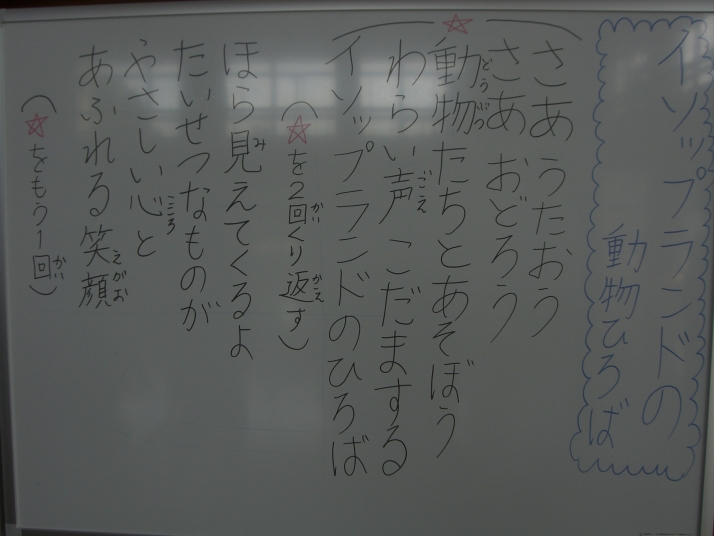 イソップランドの
動物ひろば
☆
さあ うたおう
さあ おどろう
動物たちとあそぼう
どうぶつ
わらい声 こだまする
ごえ
イソップランドのひろば
(☆を2回くり返す)
かい かえ
ほら見えてくるよ
み
たいせつなものが
やさしい心と
こころ
あふれる笑顔
えがお
(☆をもう1回)
かい